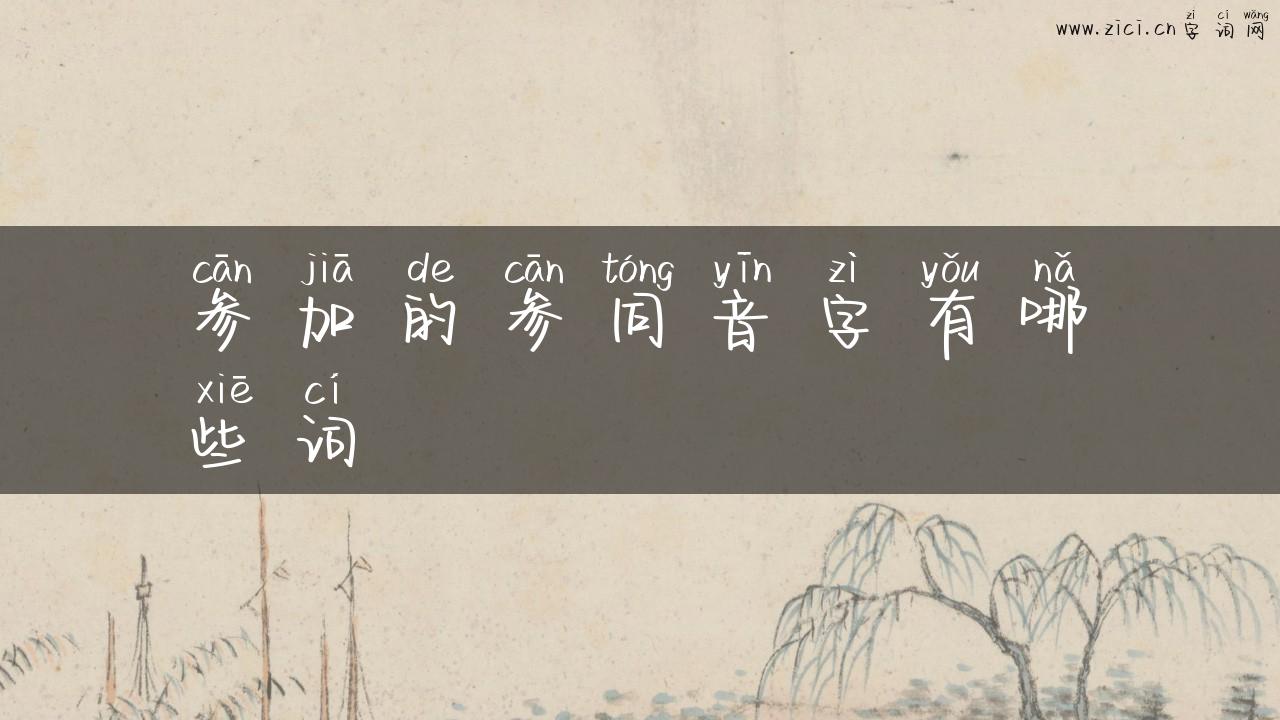 zì cí wǎng
www.zici.cn 字词网
cān jiā de cān tóng yīn zì yǒu nǎ
参加的参同音字有哪
xiē cí
些词